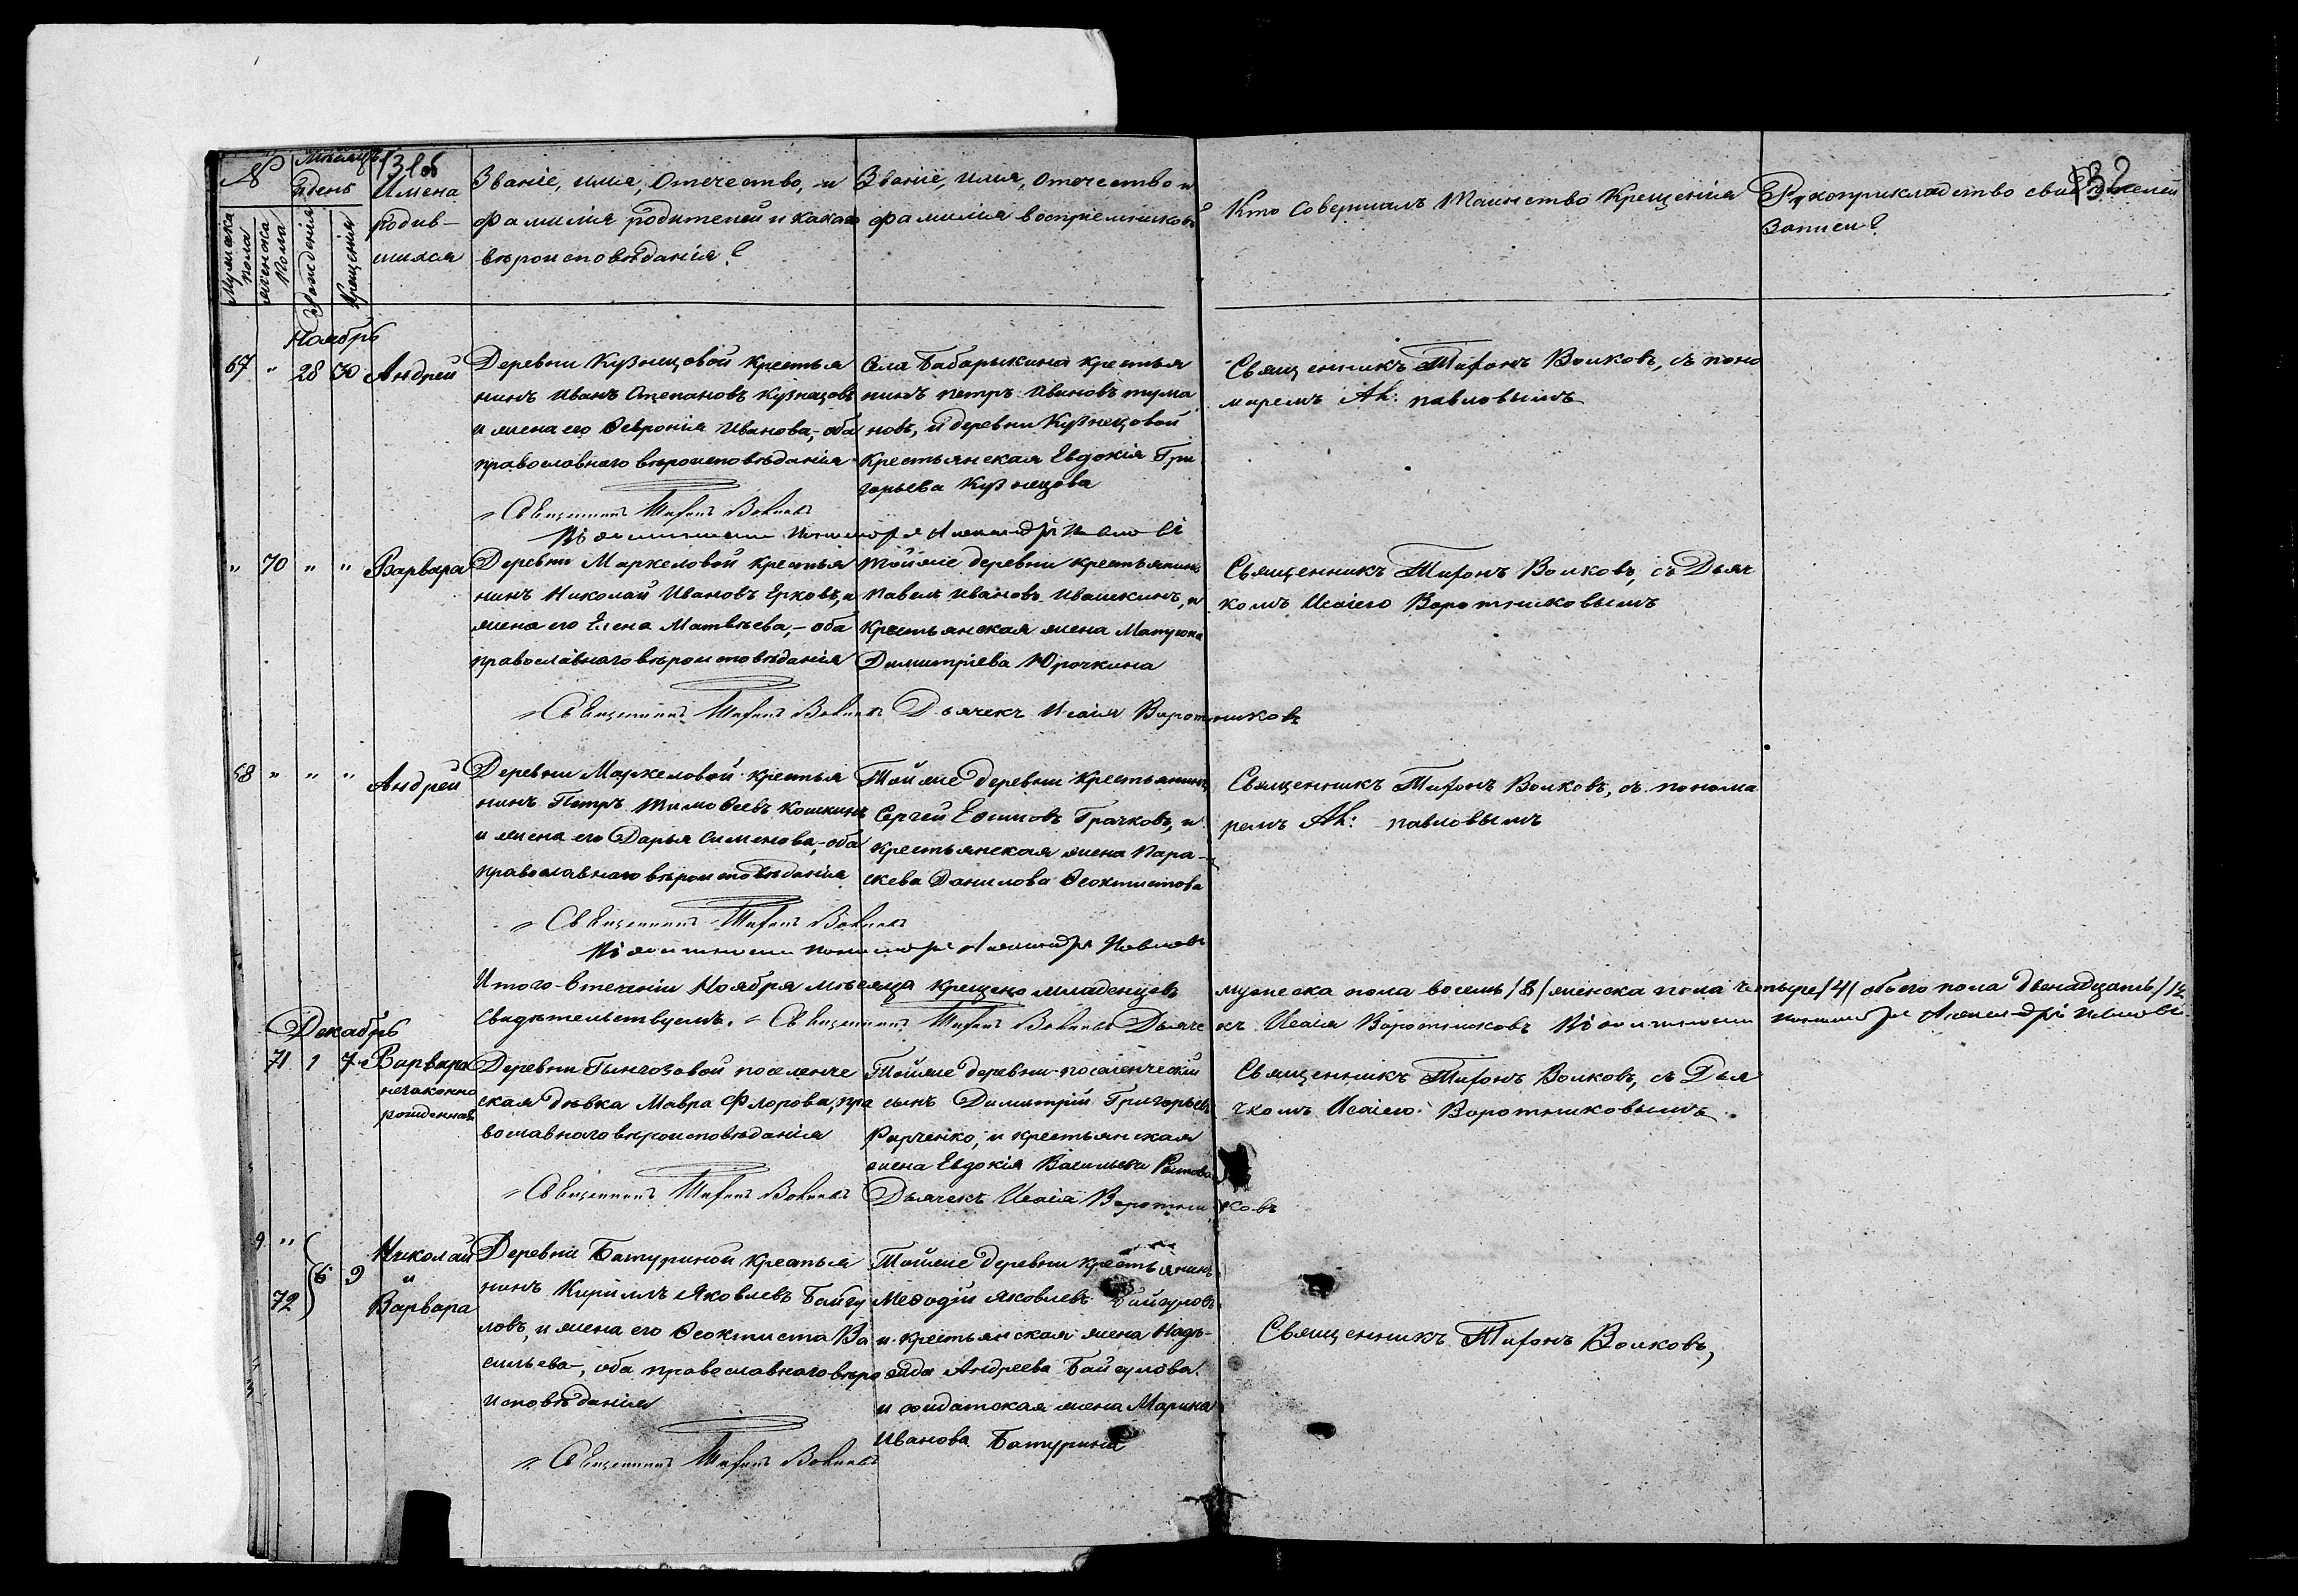 131об
132
№
Мѣсяцъ
и день
Мужеска пола
Женска пола
Рожденія
Крещенія
Имена
родив-
шихся
Званіе, имя, Отечество, и
фамилія родителей и какого
вѣроисповѣданія?
Званіе, имя, отечество и
фамилия восприемниковъ
Кто Совершалъ Таинство Крещенія
Рукоприкладство свидѣтелей
Записи?
Ноябрь
67 " 28 30 Андрей
Деревни Кузнецовой крестья
нинъ Иванъ Степановъ Кузнецовъ
и жена его Ѳевронія Иванова, – оба
православнаго вѣроисповѣданія
Села Бабарыкина крестья
нинъ Петръ Ивановъ тума
новъ, и деревни Кузнецовой
Крестьянская Евдокія Гри
горьева Кузнецова
Священникъ Тифонъ Волковъ, съ поно
маремъ Ал: павловымъ
Священникъ Тифонъ Волковъ
пономаря Александръ Павловъ
" 70 " " Варвара
Деревни Маркеловой крестья
нинъ Николай Ивановъ Ерковъ, и
жена его Елена Матвѣева, – оба
православнаго вѣроисповѣданія
Тойже деревни крестьянинъ
Павелъ Ивановъ Ивашкинъ, и
Крестьянская жена Матрона
Димитріева Юрочкина
Священникъ Тифонъ Волковъ, съ Дьяч
комъ Исаіею Воротниковымъ
Священникъ Тифонъ Волковъ Дьячекъ Исаія Воротниковъ
68 " " " Андрей
Деревни Маркеловой крестья
нинъ Петръ Тимоѳеевъ Кошкинъ
и жена его Дарья Симонова, – оба
православнаго вѣроисповѣданія
Тойже деревни Крестьянинъ
Сергей Ефимовъ Грачковъ, и
крестьянская жена Пара-
скева Данилова Ѳеоктистова
Священникъ Тифонъ Волковъ, съ понома
ремъ Ал: павловымъ
Священникъ Тифонъ Волковъ
пономаря Александръ Павловъ
Итого втеченіи Ноября мѣсяца крещено младенцевъ мужеска пола восемь /8/ женска пола четыре /4/ обоего пола двенадцать /12
Свидѣтельствуемъ. Священникъ Тифонъ Волковъ Дьяче
къ Исаія Воротниковъ пономаря Александръ Павловъ
Декабрь
71 1 7 Варвара
незаконно
рожденная
Деревни Гынгозовой поселенче
ская дѣвка Мавра Флорова, пра
вославного вѣроисповѣданія
Тойже деревни поселенческій
сынъ Димитрій Григорьевъ
Рарченко, и крестьянская
жена Евдокія Васильева
Священникъ Тифонъ Волковъ, съ Дья
чкомъ Исаіею Воротниковымъ
Священникъ Тифонъ Волковъ Дьячекъ Исаія Воротниковъ
9 "
72
6 9
Николай
и
Варвара
Деревни Батуриной крестья
нинъ Кириллъ Яковлевъ Байгу
ловъ, и жена его Ѳеоктиста Ва
сильева, оба православнаго вѣро
исповѣданія
Тойже деревни крестьянинъ
Меѳодій Яковлевъ Байгуловъ
и крестьянская жена Надѣ-
жда Андреева Байгулова
и солдатская жена Марина
Иванова Батурина
Священникъ Тифонъ Волковъ,
Священникъ Тифонъ Волковъ